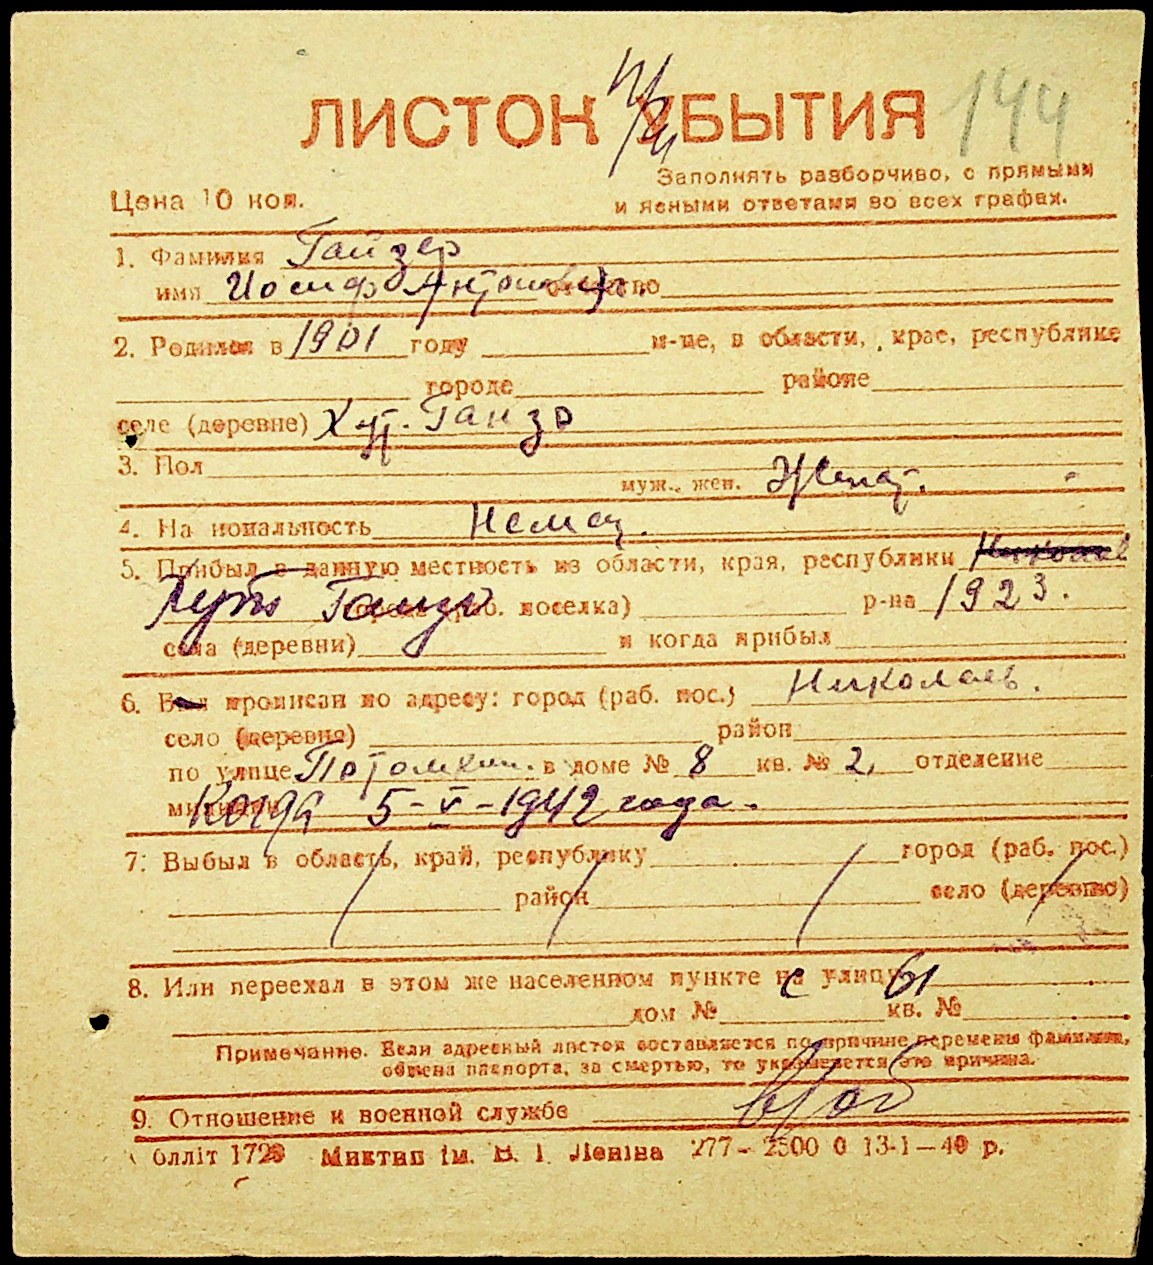 ЛИСТОК УБЫТИЯ 144
Заполнять разборчиво, с прямыми
Цена 10 коп. и ясными ответами во всех графах.
1. Фамилия Гайзер
имя Иосиф Антонович отчество
2. Родился в 1901 году м-це, в области, крае, республике
городе районе
селе (деревне) Хут. Ганзо
3. Пол муж., жен. Женат.
4. Национальность Немец.
5. Прибыл в данную местность из области, края, республики Николаев
города (раб. поселка) р-на 1923.
села (деревни) и когда прибыл
6. Был прописан по адресу: город (раб. пос.) Николаев.
село (деревня) район
по улице Потомкин. в доме № 8 кв. № 2, отделение
милиции Когда 5-V-1942 года.
7. Выбыл в область, край, республику город (раб. пос.)
район село (деревню)
8. Или переехал в этом же населенном пункте на улицу
дом № кв. №
Примечание. Если адресный листок составляется по причине перемены фамилии,
обмена паспорта, за смертью, то указывается эта причина.
9. Отношение к военной службе в/об
блліт 1729 Миктип ім. В. І. Леніна 277-2500 0 13-1-40 р.